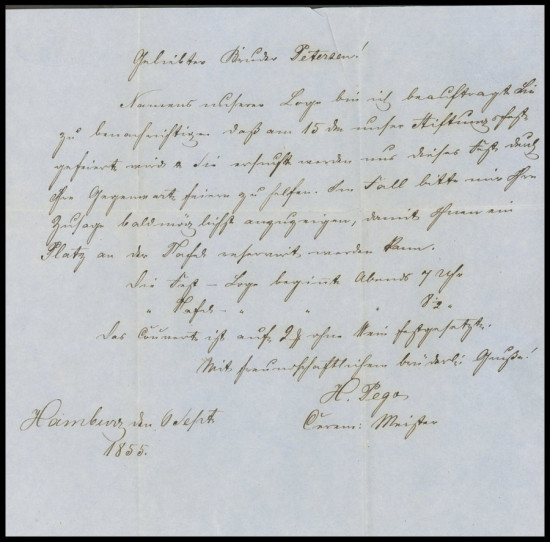 Geliebter Bruder Petersen!
Namens unserer Loge bin ich beauftragt Sie
zu benachrichtigen daß am 15 d unser Stiftungsfest
gefeiert wird & Sie ersucht werden uns dieses Fest durch
Ihre Gegenwart feiern zu helfen. Den Fall bitte mir Ihre
Zusage baldmöglichst anzuzeigen, damit Ihnen ein
Platz an der Tafel reservirt werden kann.
Die Fest-Loge beginnt Abends 7 Uhr
" Tafel- " " " 8½ "
Das Couvert ist auf 2 ohne Wein festgesetzt.
Mit freundschaftlichem brüderli Gruße!
H. Pego
Cerem: Meister
Hamburg den 6 Sept
1855.